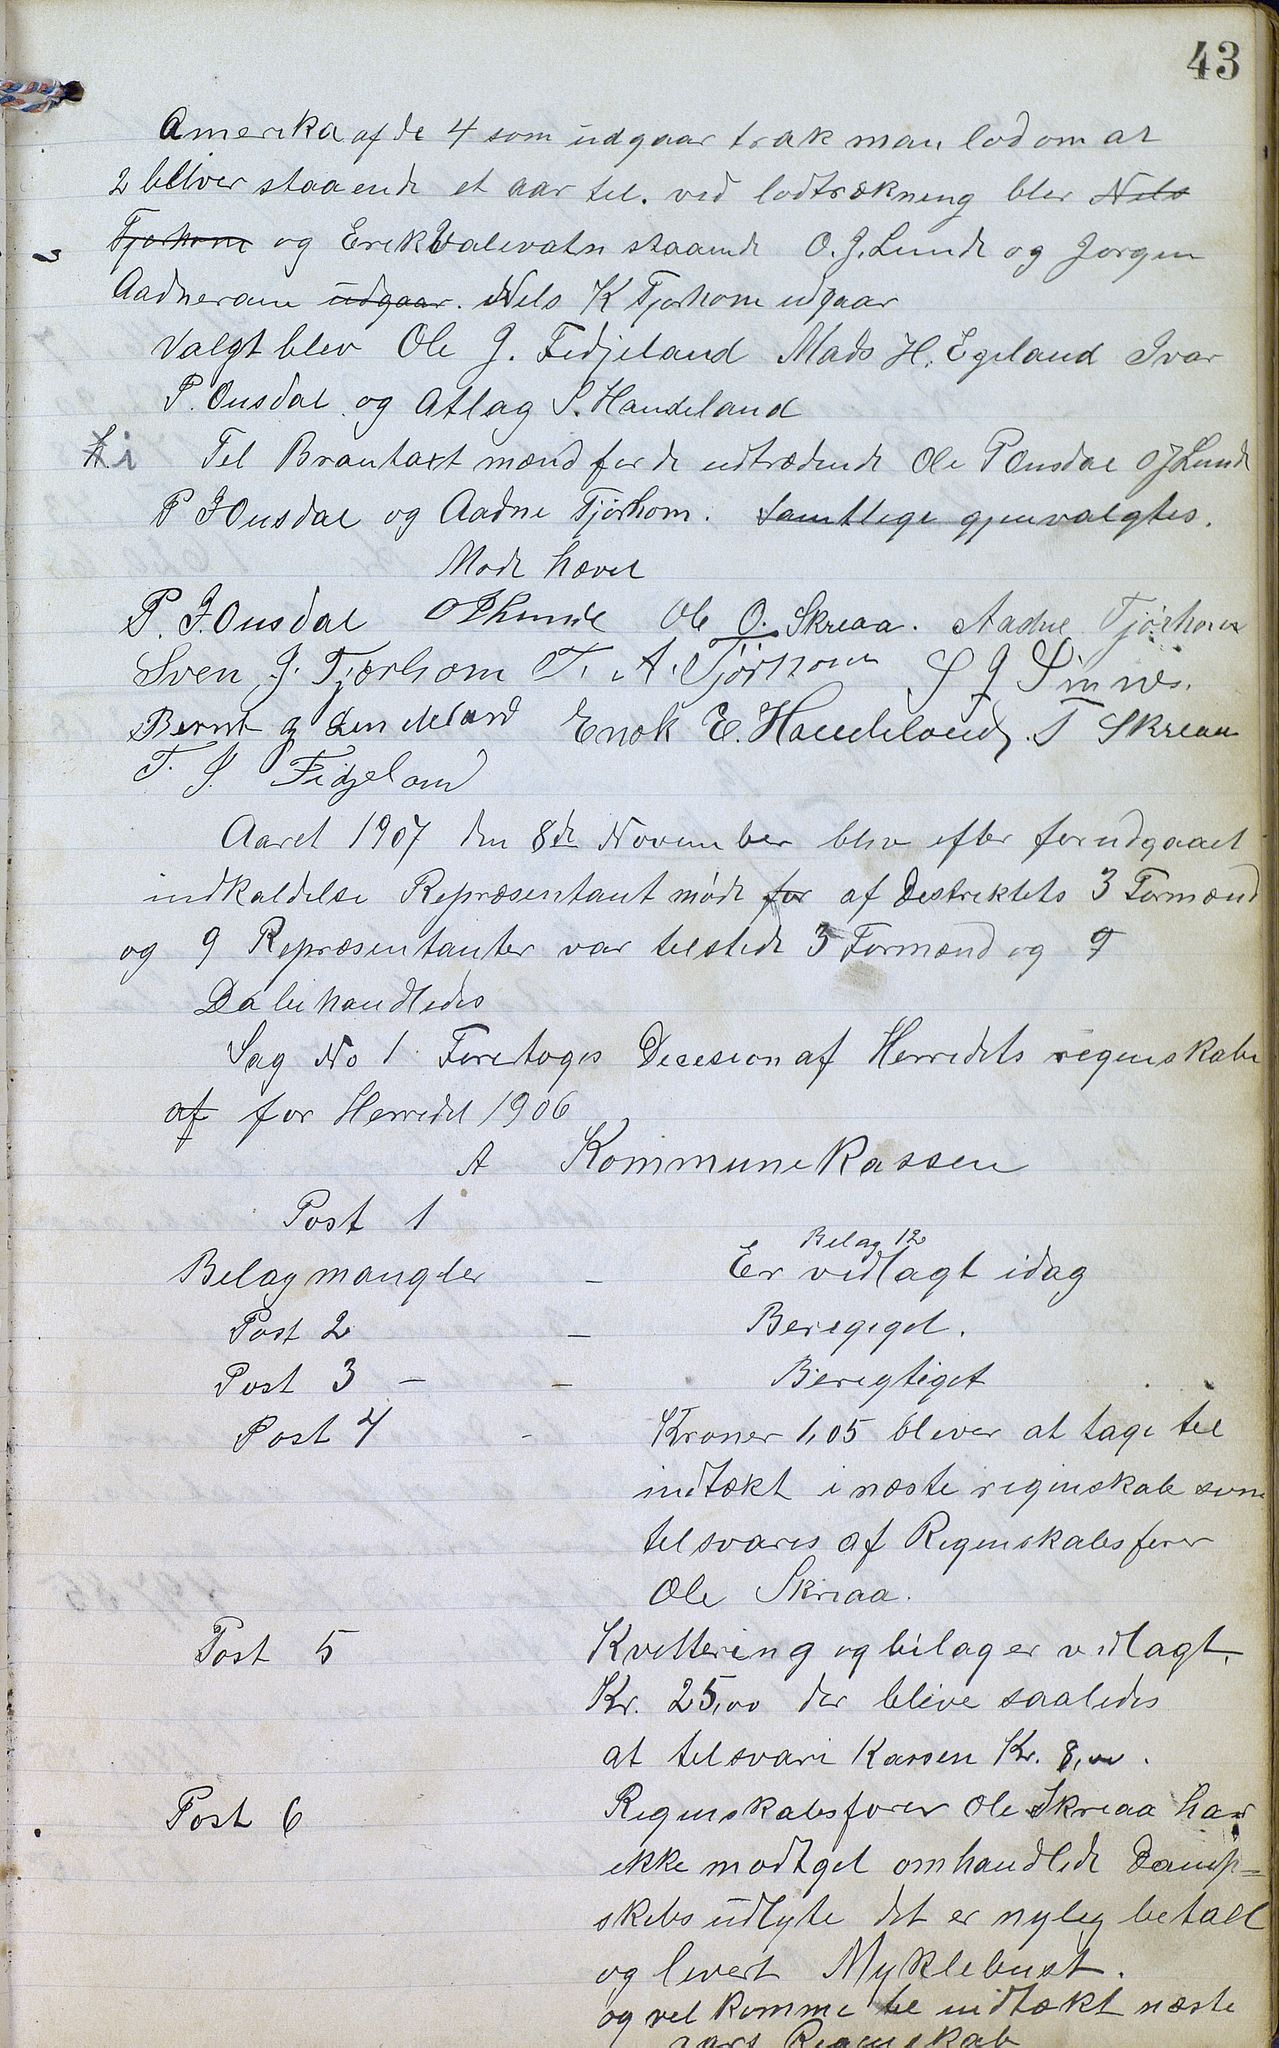 43
Amerika af de 4 som udgaar trak man lod om at
2 bliver staaende et aar til. ved lodtrækning blev Nils
Tjorhom og Erik Valevatn staaende O. J. Lunde og Jorgen
Aadneram udgaar. Nels K Tjorhom udgaar
Valgt blev Ole J. Fidjeland Mads H. Egeland Ivar
P. Ousdal og Atlag S. Haudeland
i Til Brantaxt mænd for de udtrædende Ole P Ousdal O J Lunde
P J Ousdal og Aadne Tjørhom. Samtlige gjenvalgtes.
Mode hævet
P. J. Ousdal O P Lunde Ole O. Skreaa. Aadne Tjørhom
Sven J. Tjørhom T. A. Tjørhom S J Sinnes.
Bernt J Haudeland Enok E. Haudeland T Skreaa
T. S. Fidjeland
Aaret 1907 den 8de November blev efter forudgaaet
indkaldelse Repræsentant møde for af Destriktets 3 Formænd
og 9 Repræsentanter var telstede 3 Formænd og 9
Da behandledes
Sag No 1 Foretoges Decesion af Herredets regenskabe
af for Herredet 1906
A Kommunekassen
Post 1
Belag 12
Belag mangler - Er vedlagt idag
Post 2 - Beregiget.
Post 3 - - Berigtiget
Post 4 - Kroner 1,05 blever at tage tel
indtækt i næste regenskab som
telsvares af Regenskabsfører
Ole Skreaa.
Post 5 Kvittering og bilag er vedlagt.
Kr. 25,00 der bleve saaledes
at telsvare Kassen Kr. 8,00.
Post 6 Regenskabsfører Ole Skreaa har
ikke modtget omhandlede Damp-
skebs udbyte det er nyleg betalt
og levert Myklebust.
og vel komme tel indtækt næste
aars Regenskab